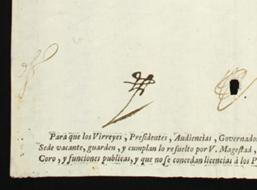 Para que los Virreyes, Presidentes, Audiencias, Governado
Sede vacante, guarden, y cumplan lo resuelto por V. Magestad,
Coro, y funciones publicas, y que no se concedan licencias à los P